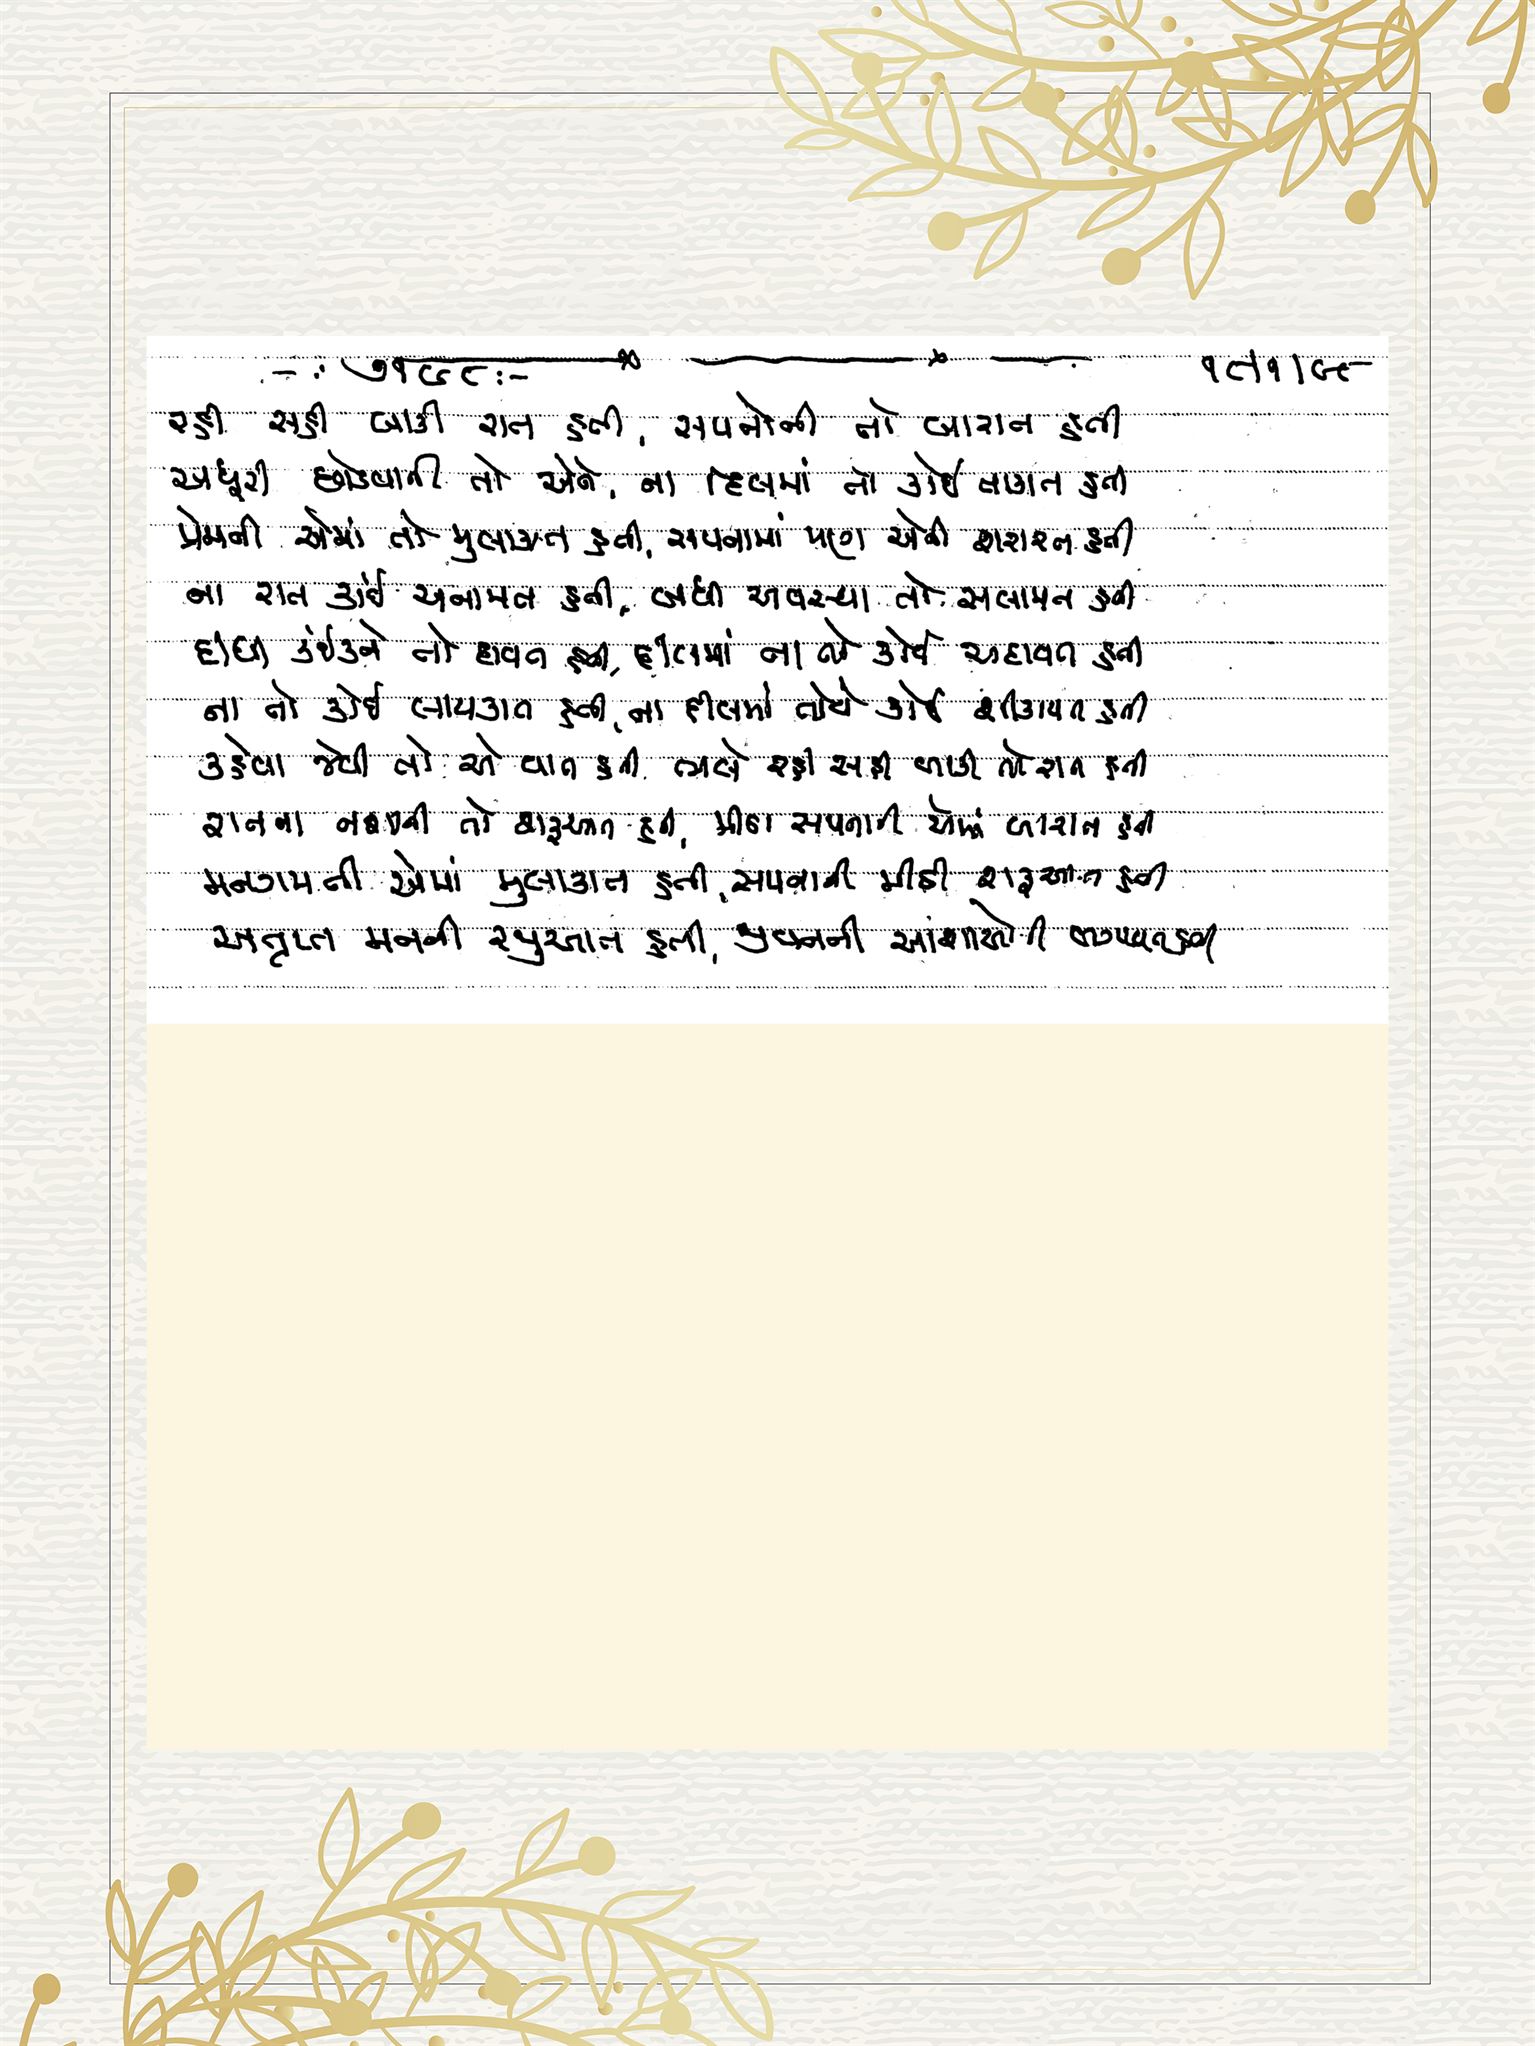 -: ૭૧૬૮ :-
રહી સહી બાકી રાત હતી, સપનોની તો બારાત હતી
અધૂરી છોડવાની તો એને, ના દિલમાં તો કોઈ તાકાત હતી
પ્રેમની એમાં તો મુલાકાત હતી, સપનામાં પણ એની શરારત હતી
ના રાત કાંઈ અનામત હતી, બધી અવસ્થા તો સલામત હતી
દીધી કંઈકને તો દાવત હતી, દીલમાં ના તોયે કોઈ અદાવત હતી
ના તો કોઈ લાયકાત હતી, ના દીલમાં તોયે કોઈ શીકાયત હતી
કહેવા જેવી તો એ વાત હતી ભલે રહી સહી બાકી તો રાત હતી
રાતના નશાની તો શરૂઆત હતી, મીઠા સપનાની એમાં બારાત હતી
મનગમતી એમાં મુલાકાત હતી, સપનાની મીઠી શરૂઆત હતી
અતૃપ્ત મનની રજુઆત હતી, જીવનની આશાઓની હતી